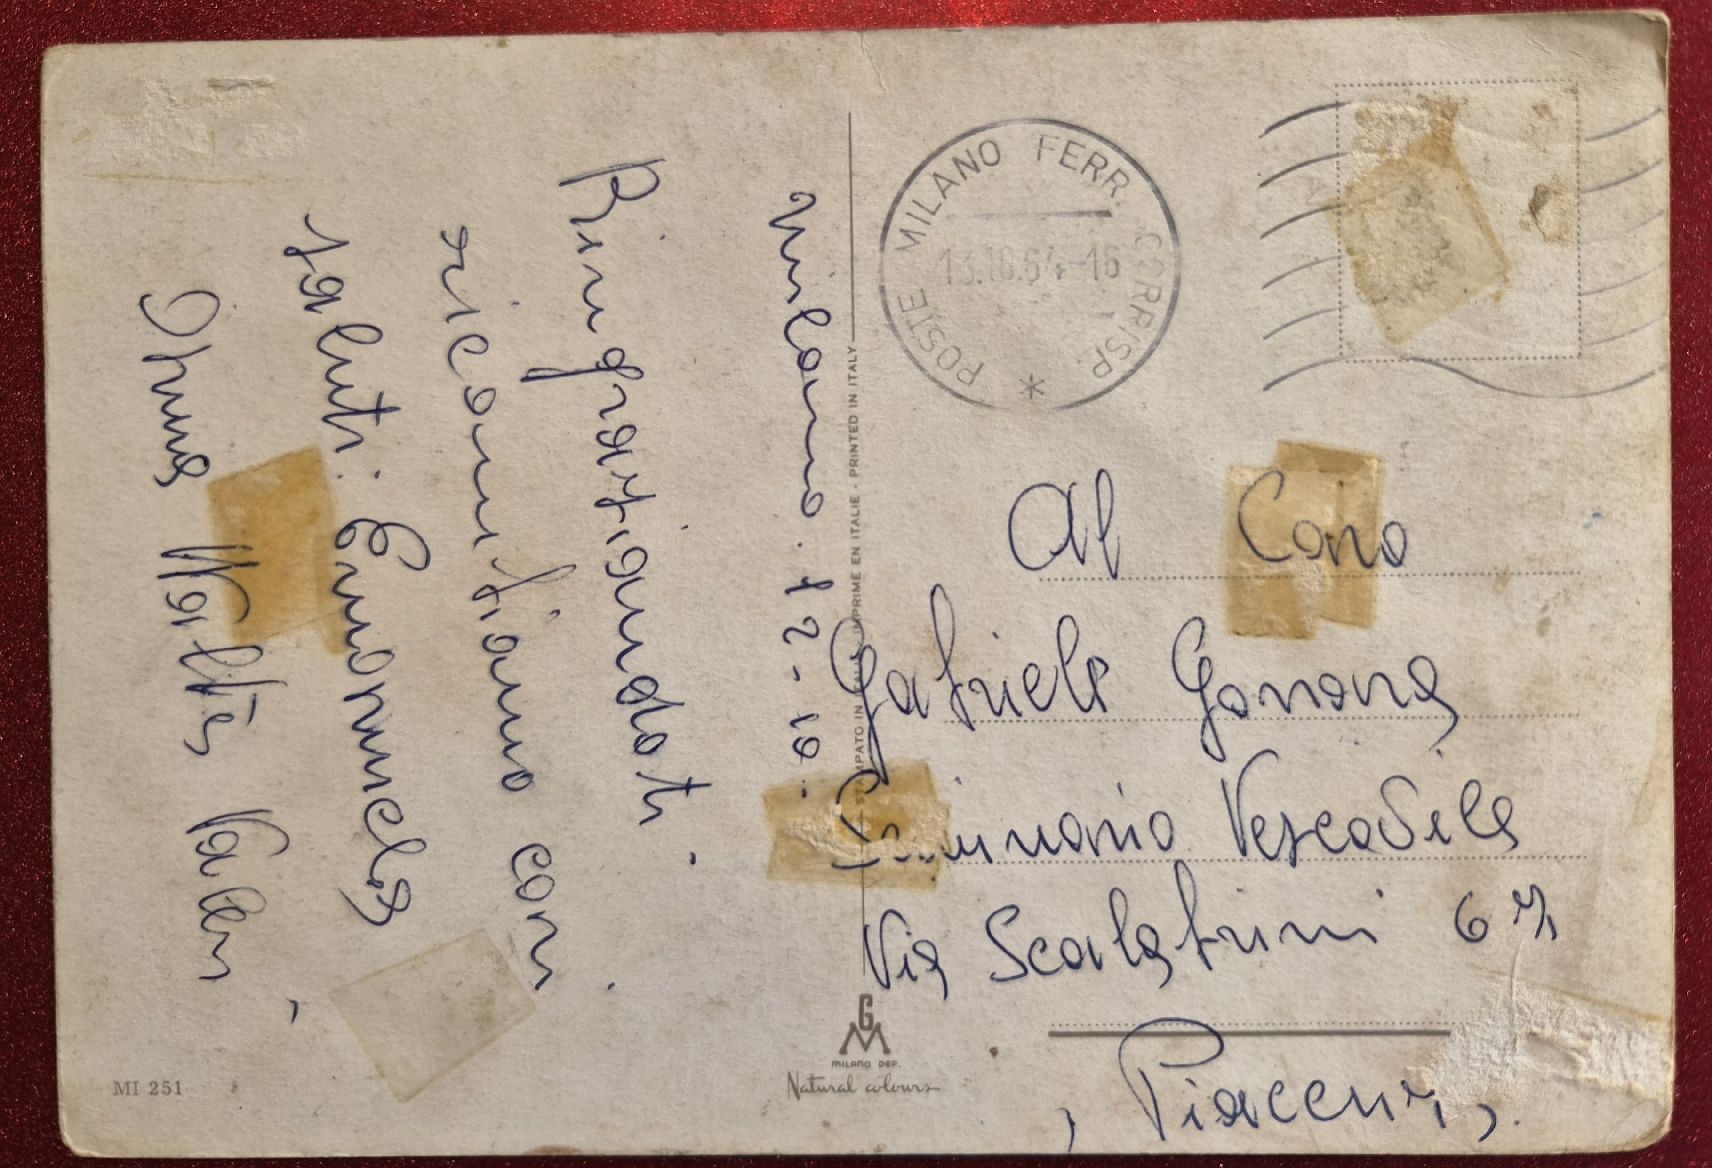 Milano. 12-10.
Ringraziandoti
ricambiamo con
saluti. Emanuela
Walter
POSTE MILANO FERR. CORRISP.
13.10.64-16
*
Al Caro
Gabriele
Seminario Vescovile
Via Scalabrini 67
Piacenza.
STAMPATO IN ITALIA - IMPRIME EN ITALIE - PRINTED IN ITALY
GM
MILANO DEP.
Natural colours
MI 251